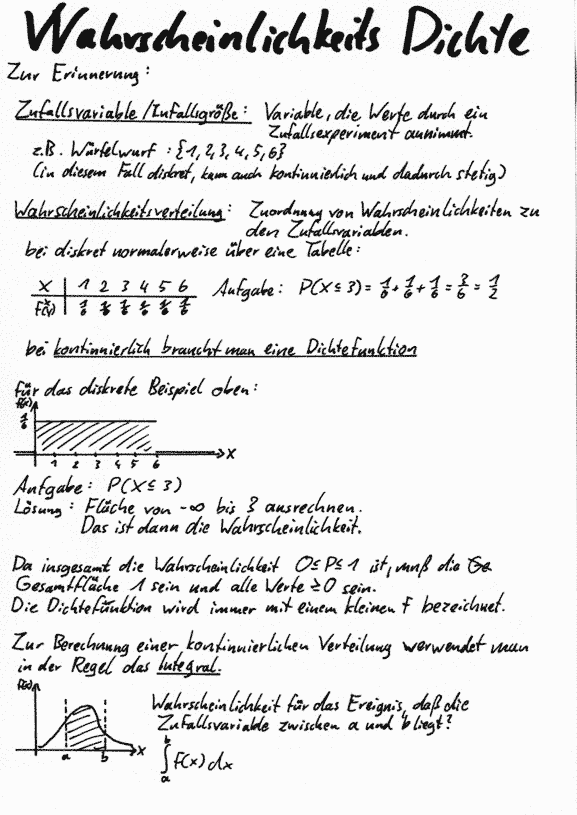 Wahrscheinlichkeits Dichte
Zur Erinnerung:
Zufallsvariable/Zufallsgröße: Variable, die Werte durch ein
Zufallsexperiment annimmt.
z.B. Würfelwurf : {1,2,3,4,5,6}
(in diesem Fall diskret, kann auch kontinuierlich und dadurch stetig)
Wahrscheinlichkeitsverteilung: Zuordnung von Wahrscheinlichkeiten zu
den Zufallsvariablen.
bei diskret normalerweise über eine Tabelle:
X | 1 2 3 4 5 6 Aufgabe: P(X≤3) = 1/6 + 1/6 + 1/6 = 3/6 = 1/2
f(x) | 1/6 1/6 1/6 1/6 1/6 1/6
bei kontinuierlich braucht man eine Dichtefunktion
für das diskrete Beispiel oben:
f(x)
1/6
1 2 3 4 5 6 X
Aufgabe: P(X≤3)
Lösung: Fläche von -∞ bis 3 ausrechnen.
Das ist dann die Wahrscheinlichkeit.
Da insgesamt die Wahrscheinlichkeit 0≤P≤1 ist, muß die Ge
Gesamtfläche 1 sein und alle Werte ≥0 sein.
Die Dichtefunktion wird immer mit einem kleinen f bezeichnet.
Zur Berechnung einer kontinuierlichen Verteilung verwendet man
in der Regel das Integral.
f(x)
a b X
Wahrscheinlichkeit für das Ereignis, daß die
Zufallsvariable zwischen a und b liegt?
∫ₐᵇ f(x) dx